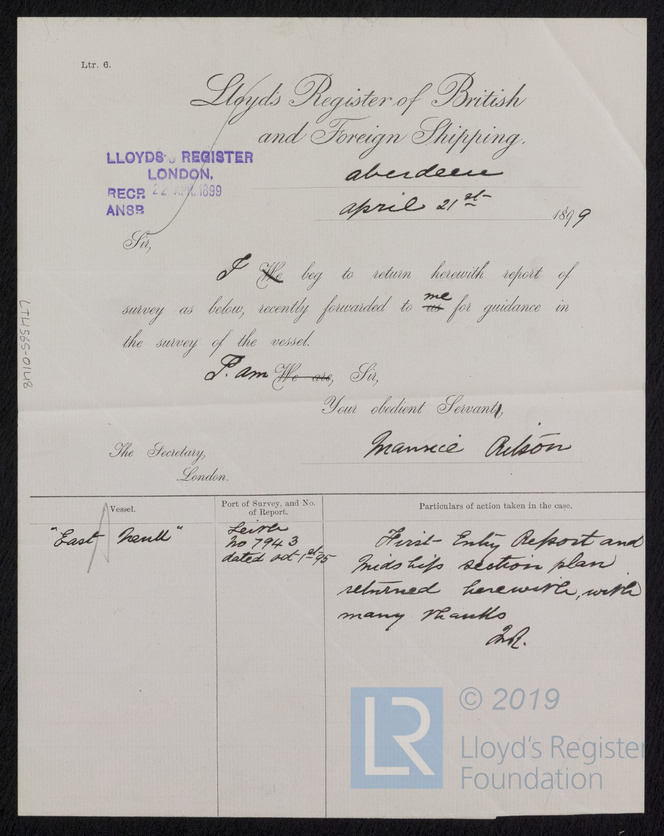 Ltr. 6.
Lloyd's Register of British
and Foreign Shipping.
LLOYDS REGISTER
LONDON.
RECR 22 APR. 1899
ANSR
aberdeen
april 21st 1899
Sir,
I We beg to return herewith report of
survey as below, recently forwarded to us me for guidance in
the survey of the vessel.
I am We are, Sir,
Your obedient Servant,
Maurice
The Secretary,
London.
Vessel.
Port of Survey, and No. of Report.
Particulars of action taken in the case.
"East
Leith
No 7943
dated oct 1st 95
First Entry Report and
Midships section plan
returned herewith, with
many thanks
LTU565-0148
© 2019
LR
Lloyd's Register
Foundation